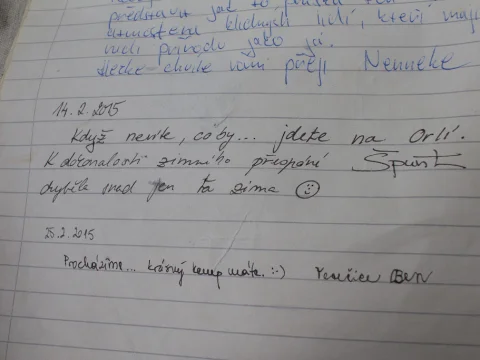 představu jak to
atmosféru klidných lidí, kteří mají
vůči přírodě jako já.
Hezké chvíle vám přeji Nenneke
14.2.2015
Když nevíš, co by... jdete na Orlí.
K dokonalosti zimního přespání
chyběla snad jen ta zima ☺
25.2.2015
Procházíme... krásný kemp máte. :-) Ben